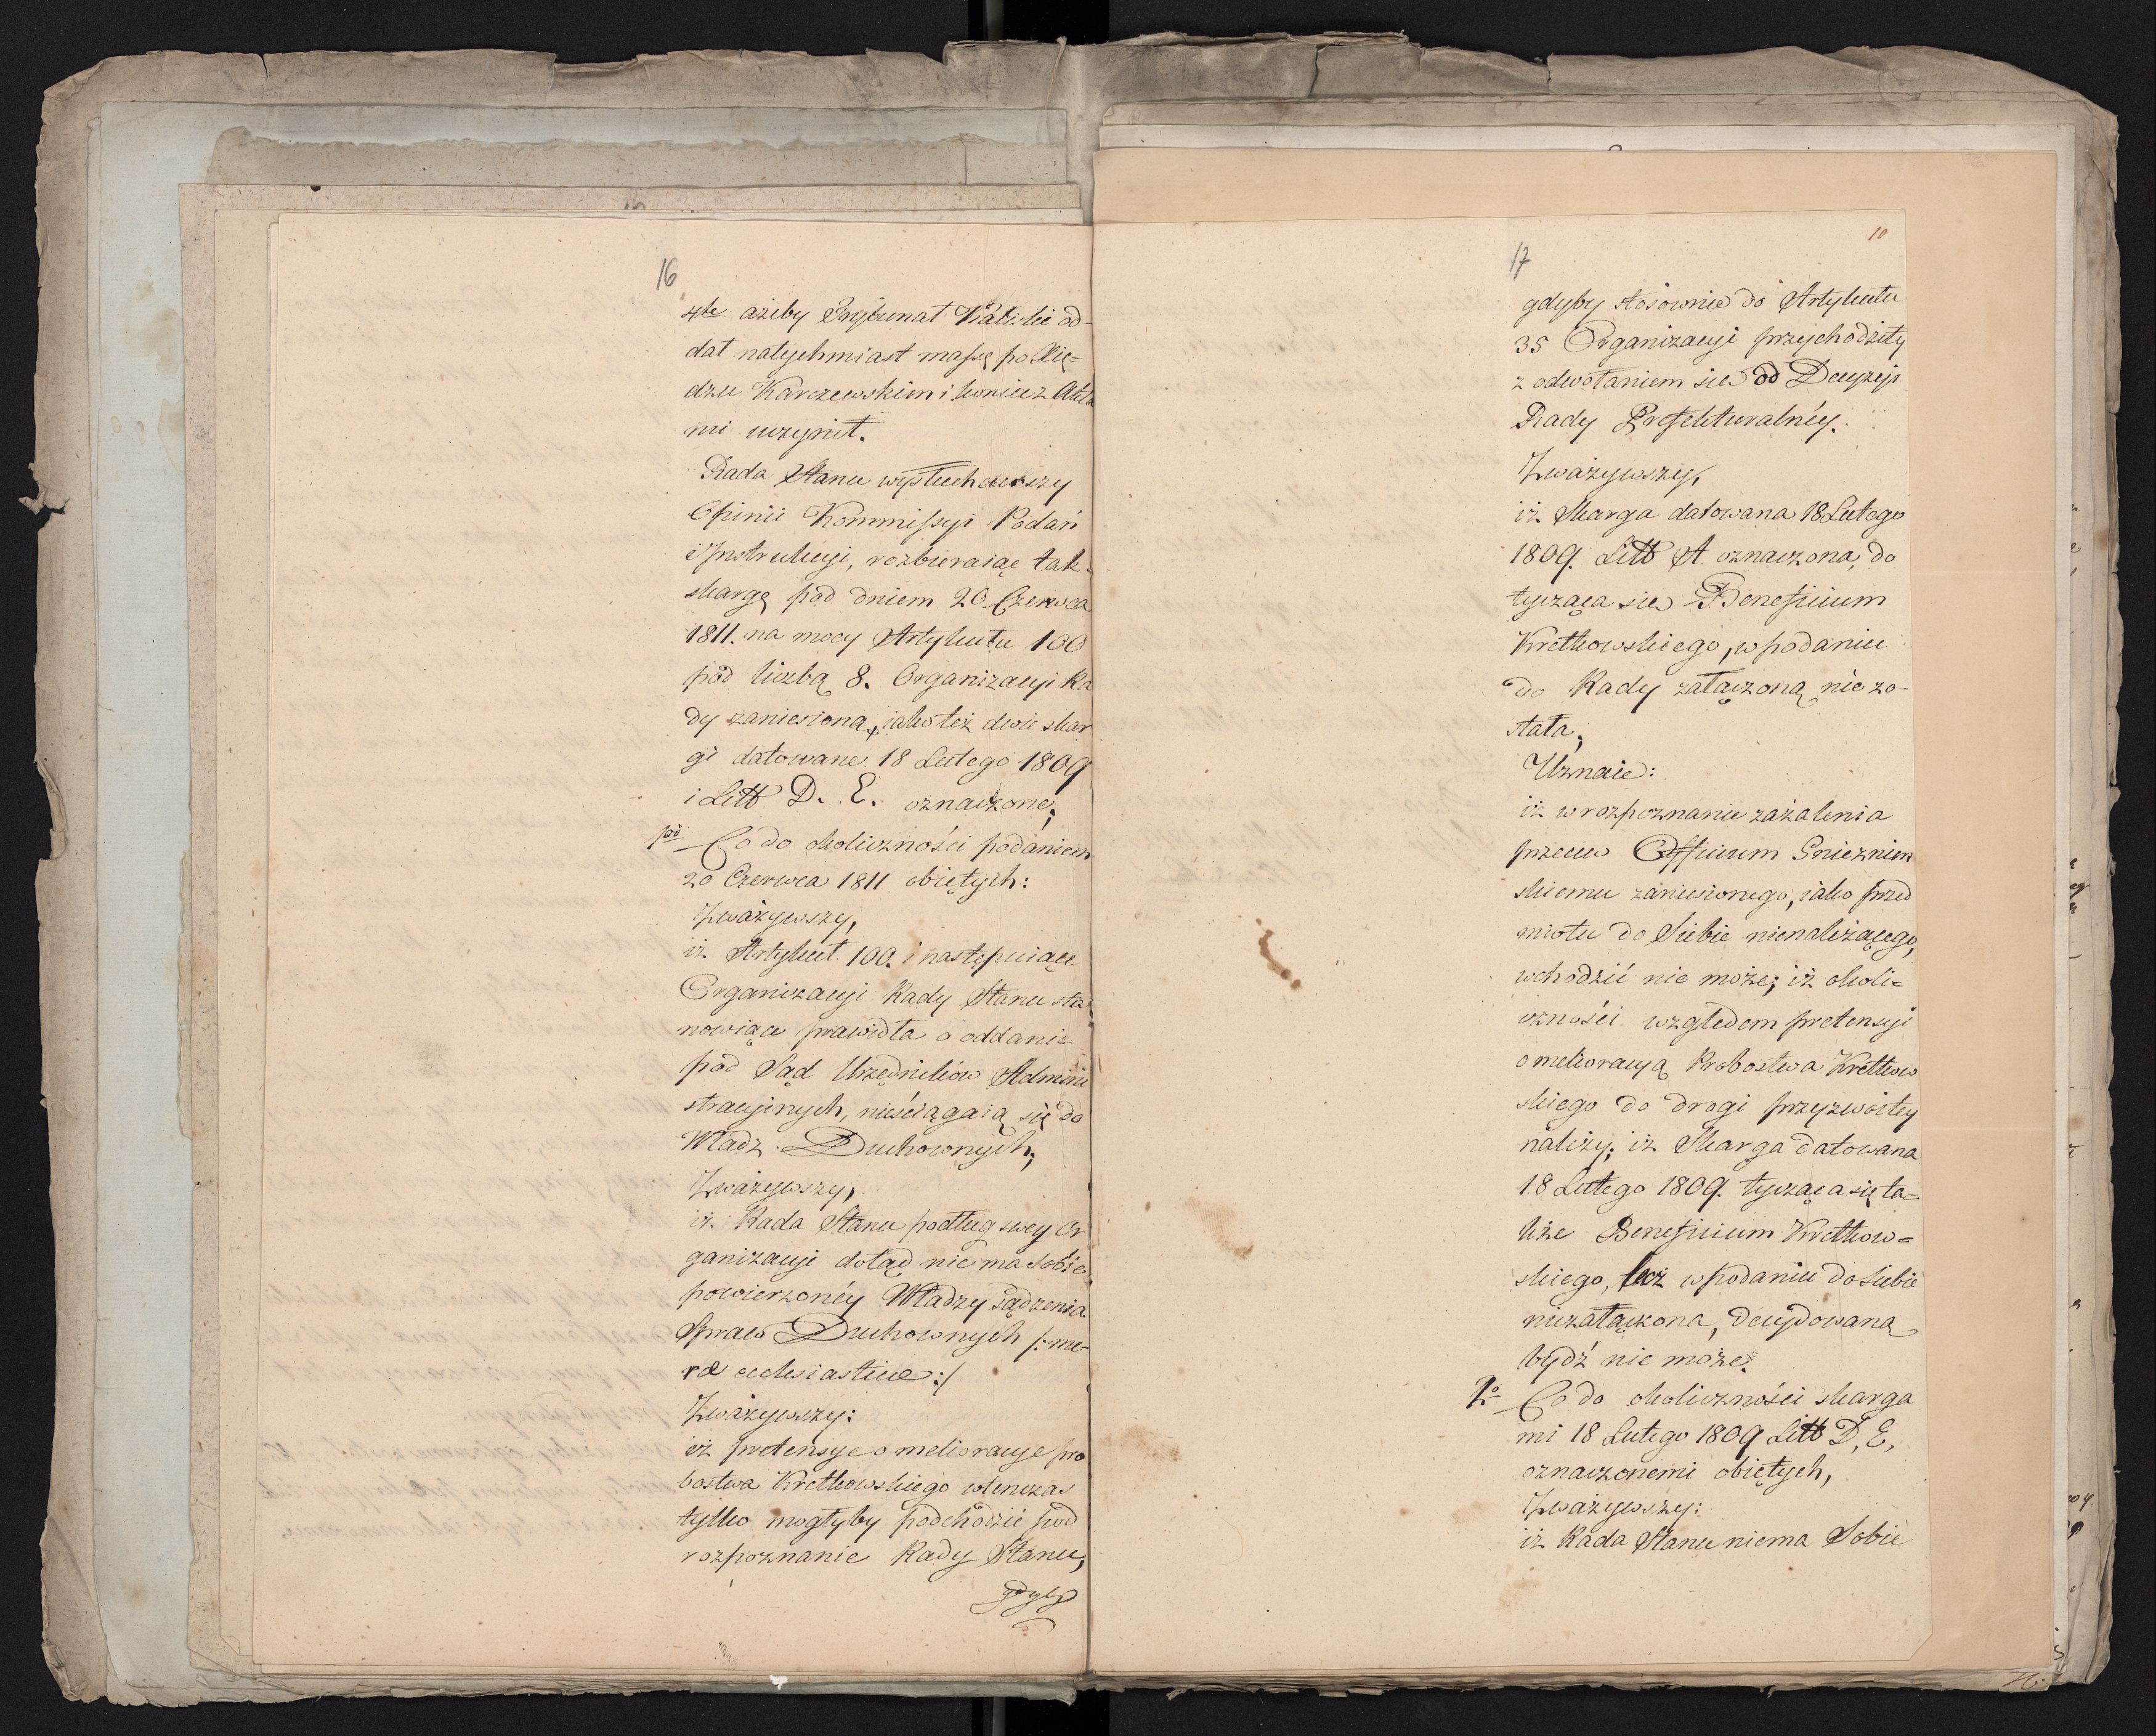 16
4te ażeby Trybunał Kaliski od-
dał natychmiast massę po Xię=
dzu Karczewskim i koniec z Akta
mi uczynił.
Rada Stanu wysłuchawszy
Opinii Kommissyi Podań
i Instrukcyi, rozbieraiąc tak
skargę pod dniem 20 Czerwca
1811. na mocy Artykułu 100
pod liczbą 8. Organizacyi Ra
dy zaniesioną, iako też dwie skar
gi datowane 18 Lutego 1809
i Litt D. E. oznaczone;
po Co do okoliczności podaniem
20 Czerwca 1811 obiętych:
Zważywszy,
iż Artykuł 100. i następuiące
Organizacyi Rady Stanu sta
nowiące prawidła o oddanie
pod Sąd Urzędników Admini
stracyinych, nieściągaią się do
Władz Duchownych;
Zważywszy,
iż Rada Stanu podług swey Or
ganizacyi dotąd nie ma Sobie
powierzonéy Władzy sądzenia
Spraw Duchownych /: me-
re ecclesiasticae :/
Zważywszy:
iż pretensye o melioracye pro
bostwa Kretkowskiego wtenczas
tylko mogłyby podchodzić pod
rozpoznanie Rady Stanu,
gdyby
10
17
gdyby stosownie do Artykułu
35 Organizacyi przychodziły
z odwołaniem się od Decyzyi
Rady Prefekturalnéy.
Zważywszy,
iż Skarga datowana 18 Lutego
1809. Litt A. oznaczona, do
tycząca się Beneficium
Kretkowskiego, w podaniu
do Rady załączoną nie zo-
stała;
Uznaie:
iż w rozpoznanie zażalenia
przeciw Officium Gnieznien
skiemu zaniesionego, iako przed
miotu do Siebie nienależącego,
wchodzić nie może; iż okoli=
czności względem pretensyi
o melioracyą Probostwa Kretkow
skiego do drogi przyzwoitey
należy; iż Skarga datowana
18 Lutego 1809. tycząca się ta=
kże Beneficium Kretkow=
skiego, lecz w podaniu do Siebie
niezałączona, decydowaną
bydź nie może.
2o Co do okoliczności skarga
mi 18 Lutego 1809 Litt D, E,
oznaczonemi obiętych,
Zważywszy:
iż Rada Stanu niema Sobie